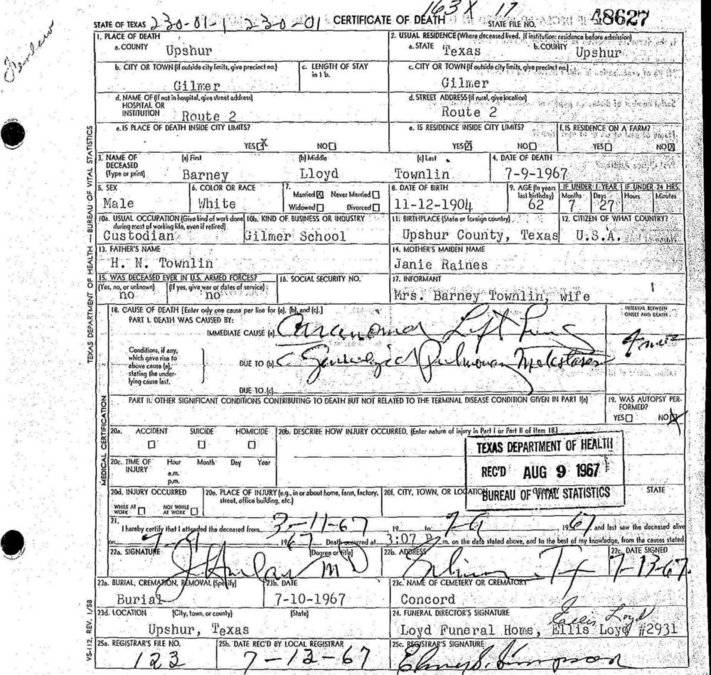 163X 17
STATE OF TEXAS 230-01-1 230-01 CERTIFICATE OF DEATH STATE FILE NO. 48627
1. PLACE OF DEATH
a. COUNTY
Upshur
2. USUAL RESIDENCE (Where deceased lived. If institution: residence before admission)
a. STATE Texas b. COUNTY Upshur
b. CITY OR TOWN (If outside city limits, give precinct no.)
Gilmer
c. LENGTH OF STAY in 1 b.
c. CITY OR TOWN (If outside city limits, give precinct no.)
Gilmer
d. NAME OF (If not in hospital, give street address) HOSPITAL OR INSTITUTION
Route 2
d. STREET ADDRESS (If rural, give location)
Route 2
e. IS PLACE OF DEATH INSIDE CITY LIMITS?
YES☒ NO☐
e. IS RESIDENCE INSIDE CITY LIMITS?
YES☒ NO☐
f. IS RESIDENCE ON A FARM?
YES☐ NO☒
3. NAME OF DECEASED (Type or print)
(a) First (b) Middle (c) Last
Barney Lloyd Townlin
4. DATE OF DEATH
7-9-1967
5. SEX
Male
6. COLOR OR RACE
White
7. Married☒ Never Married☐
Widowed☐ Divorced☐
8. DATE OF BIRTH
11-12-1904
9. AGE (In years last birthday)
62
IF UNDER 1 YEAR
Months Days
7 27
IF UNDER 24 HRS.
Hours Minutes
10a. USUAL OCCUPATION (Give kind of work done during most of working life, even if retired)
Custodian
10b. KIND OF BUSINESS OR INDUSTRY
Gilmer School
11. BIRTHPLACE (State or foreign country)
Upshur County, Texas
12. CITIZEN OF WHAT COUNTRY?
U.S.A.
13. FATHER'S NAME
H. N. Townlin
14. MOTHER'S MAIDEN NAME
Janie Raines
15. WAS DECEASED EVER IN U.S. ARMED FORCES?
(Yes, no, or unknown) (If yes, give war or dates of service)
no no
16. SOCIAL SECURITY NO.
17. INFORMANT
Mrs. Barney Townlin, wife
18. CAUSE OF DEATH [Enter only one cause per line for (a), (b), and (c).]
PART I. DEATH WAS CAUSED BY:
IMMEDIATE CAUSE (a) Carcinoma Left Lung
INTERVAL BETWEEN ONSET AND DEATH
Conditions, if any, which gave rise to above cause (a), stating the underlying cause last.
DUE TO (b) Pulmonary Metastases
DUE TO (c)
PART II. OTHER SIGNIFICANT CONDITIONS CONTRIBUTING TO DEATH BUT NOT RELATED TO THE TERMINAL DISEASE CONDITION GIVEN IN PART I(a)
19. WAS AUTOPSY PERFORMED?
YES☐ NO☒
20a. ACCIDENT SUICIDE HOMICIDE
☐ ☐ ☐
20b. DESCRIBE HOW INJURY OCCURRED. (Enter nature of injury in Part I or Part II of item 18.)
20c. TIME OF INJURY
Hour Month Day Year
a.m.
p.m.
TEXAS DEPARTMENT OF HEALTH
REC'D AUG 9 1967
BUREAU OF VITAL STATISTICS
20d. INJURY OCCURRED
WHILE AT WORK ☐ NOT WHILE AT WORK ☐
20e. PLACE OF INJURY (e.g., in or about home, farm, factory, street, office building, etc.)
20f. CITY, TOWN, OR LOCATION STATE
21. I hereby certify that I attended the deceased from 3-11-67 19 7-9 1967 and last saw the deceased alive
7-9 1967 Death occurred at 3:07 P m. on the date stated above, and to the best of my knowledge, from the causes stated.
22a. SIGNATURE (Degree or title)
M D
22b. ADDRESS
Gilmer, Tx
22c. DATE SIGNED
7-13-67
23a. BURIAL, CREMATION, REMOVAL (Specify)
Burial
23b. DATE
7-10-1967
23c. NAME OF CEMETERY OR CREMATORY
Concord
23d. LOCATION (City, town, or county) (State)
Upshur, Texas
24. FUNERAL DIRECTOR'S SIGNATURE
Ellis Loyd
Loyd Funeral Home, Ellis Loyd #2931
25a. REGISTRAR'S FILE NO.
123
25b. DATE REC'D BY LOCAL REGISTRAR
7-13-67
25c. REGISTRAR'S SIGNATURE
TEXAS DEPARTMENT OF HEALTH — BUREAU OF VITAL STATISTICS
MEDICAL CERTIFICATION
VS-112, REV. 1/58